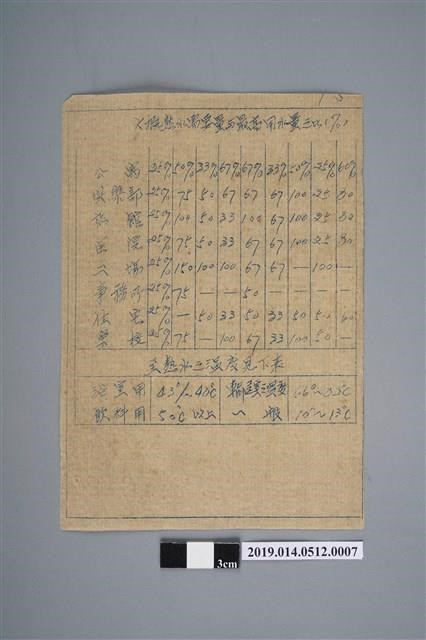 公寓 25% 50% 33% 67% 67% 33% 50% 25% 60%
俱樂部 25% 75 50 67 67 67 100 25 80
旅館 25% 100 50 33 100 67 100 25 80
醫院 25% 75 50 33 67 67 100 25 80
工場 25% 150 100 100 67 67 — 100 —
事務所 25% 75 — — 50 — — — —
住宅 25% — 50 33 50 33 50 50 60
學校 25% 75 — 100 67 33 100 50 —
至熱水之溫度見下表
浴室用 43°~48°C
飲料用 50°C 以上 一般 10°~13°C
3cm
2019.014.0512.0007